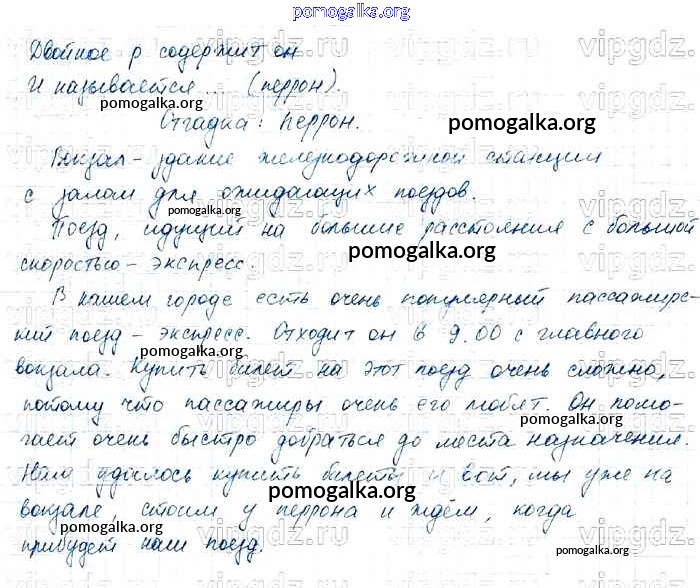 pomogalka.org
Двойное р содержит он
И называется ... (перрон).
Отгадка: перрон.
Вокзал – здание железнодорожной станции
с залом для ожидающих поездов.
Поезд, идущий на большие расстояния с большой
скоростью – экспресс.
В нашем городе есть очень популярный пассажирс-
кий поезд – экспресс. Отходит он в 9.00 с главного
вокзала. Купить билет на этот поезд очень сложно,
потому что пассажиры очень его любят. Он помо-
гает очень быстро добраться до места назначения.
Нам удалось купить билеты и вот, мы уже на
вокзале, стоим у перрона и ждём, когда
прибудет наш поезд.
pomogalka.org
pomogalka.org
pomogalka.org
pomogalka.org
pomogalka.org
pomogalka.org
pomogalka.org
pomogalka.org
pomogalka.org
vipgdz.ru